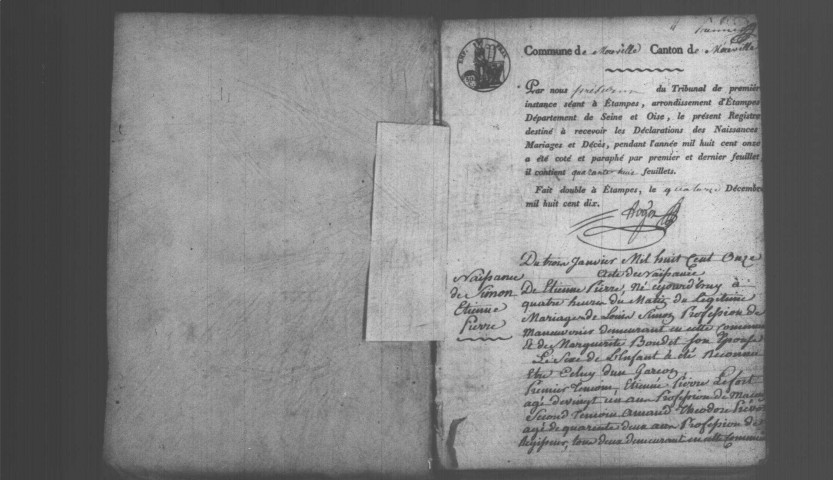 Commune de Merville Canton de Merville
Par nous président du Tribunal de première
instance séant à Étampes, arrondissement d'Étampes
Département de Seine et Oise, le présent Registre
destiné à recevoir les Déclarations des Naissances
Mariages et Décès, pendant l'année mil huit cent onze
a été coté et paraphé par premier et dernier feuillet,
il contient quarante huit feuillets.
Fait double à Étampes, le quatorze Décembre
mil huit cent dix.
Naissance
de Simon
Etienne
Pierre
Du trois Janvier Mil huit Cent Onze
Acte de Naissance
De Etienne Pierre, né cejourd'huy à
quatre heures du Matin du Légitime
Mariage de Louis Simon Profession de
Manouvrier demeurant en cette commune
Et de Marguerite Boudet son Epouse
Le Sexe de L'Enfant à été Reconnu
Etre Celuy d'un Garçon
Premier Temoin, Etienne Pierre Lefort
agé de vingt un ans Profession de
Second Temoin Armand Théodore
agé de quarente deux ans Profession de
Regisseur, tous deux demeurant en cette Commune